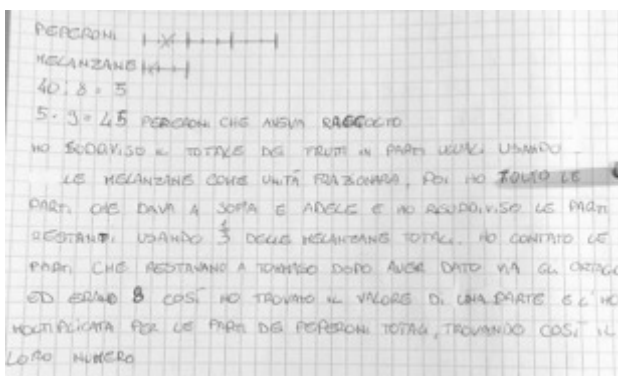 PEPERONI
MELANZANE
40 : 8 = 5
5 · 9 = 45 PEPERONI CHE AVEVA RACCOLTO
HO SUDDIVISO IL TOTALE DEI FRUTTI IN PARTI UGUALI USANDO
LE MELANZANE COME UNITÀ FRAZIONARIA, POI HO TOLTO LE
PARTI CHE DAVA A SOFIA E ADELE E HO RISUDDIVISO LE PARTI
RESTANTI USANDO 1/3 DELLE MELANZANE TOTALI. HO CONTATO LE
PARTI CHE RESTAVANO A TOMMASO DOPO AVER DATO VIA GLI ORTAGGI
ED ERANO 8 COSÌ HO TROVATO IL VALORE DI UNA PARTE E L'HO
MOLTIPLICATA PER LE PARTI DEI PEPERONI TOTALI, TROVANDO COSÌ IL
LORO NUMERO